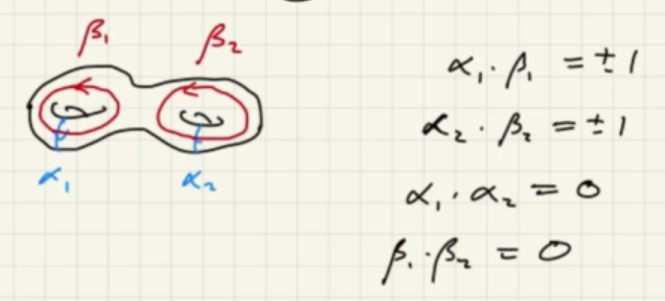 β₁ β₂
α₁ α₂
α₁ · β₁ = ±1
α₂ · β₂ = ±1
α₁ · α₂ = 0
β₁ · β₂ = 0